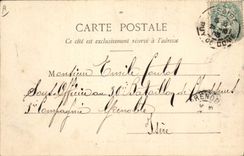 CARTE POSTALE
Ce côté est exclusivement réservé à l'adresse
Monsieur Emile
Sous Officier au 30e Bataillon de Chasseurs
5e Compagnie Grenoble
Isère
GRENOBLE